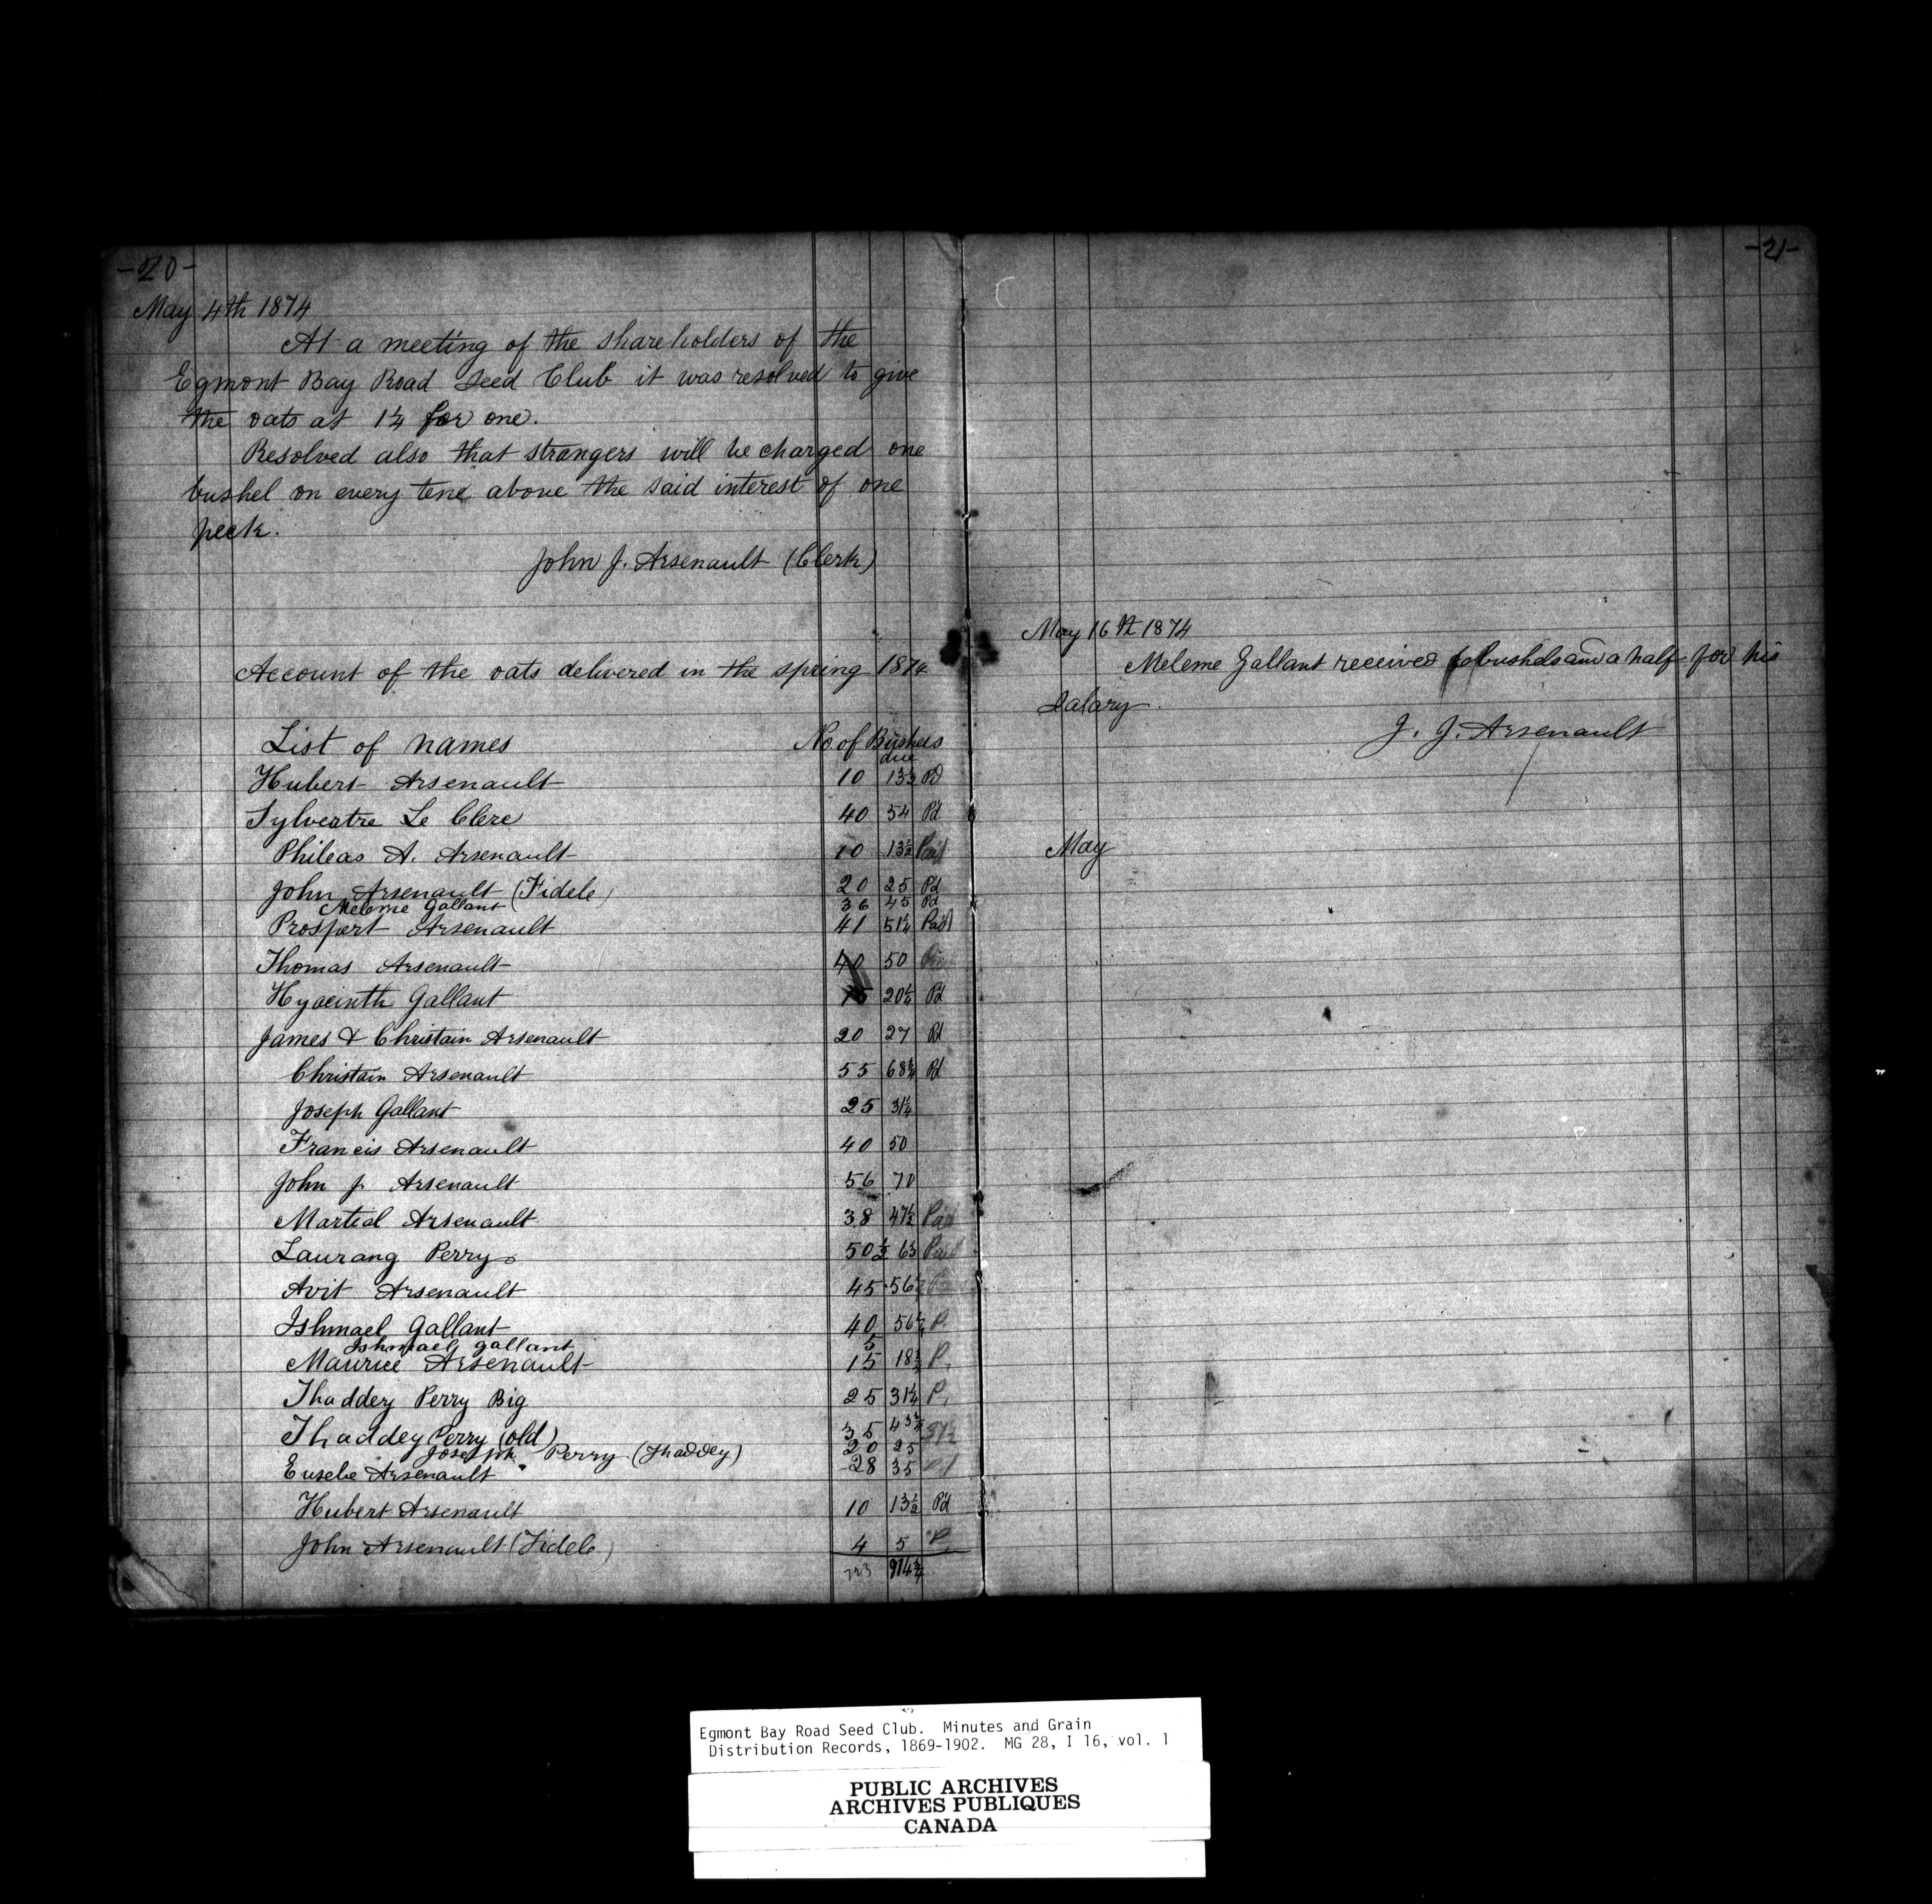 -20-
May 4th 1874
At a meeting of the shareholders of the
Egmont Bay Road Seed Club it was resolved to give
the oats at 1¼ for one.
Resolved also that strangers will be charged one
bushel on every tene above the said interest of one
peck.
John J. Arsenault (Clerk)
Account of the oats delivered in the spring 1874
List of names No. of Bushels
due
Hubert Arsenault 10 13½ Pd
Sylvertre Le Clere 40 54 Pd
Phileas A. Arsenault 10 13½ Paid
John Arsenault (Fidele) 20 25 Pd
Meleme Gallant 36 45 Pd
Prospert Arsenault 41 51¼ Paid
Thomas Arsenault 40 50
Hyacinth Gallant 15 20¼ Pd
James & Christain Arsenault 20 27 Pd
Christain Arsenault 55 68¾ Pd
Joseph Gallant 25 31¼
Francis Arsenault 40 50
John J. Arsenault 56 70
Martial Arsenault 38 47½ Paid
Laurang Perry 50½ 63 Paid
Avit Arsenault 45 56
Ishmael Gallant 40 56¼ P.
Ishmael gallant 5
Maurice Arsenault 15 18¾ P.
Thaddey Perry Big 25 31¼ P.
Thaddey Perry (old) 35 43¾ 37½
Joseph Perry (Thaddey) 20 25
Eusebe Arsenault 28 35
Hubert Arsenault 10 13½ Pd
John Arsenault (Fidele) 4 5 P.
723 914¾
-21-
May 16th 1874
Meleme Gallant received bushels and a half for his
Salary.
J. J. Arsenault
May
Egmont Bay Road Seed Club. Minutes and Grain
Distribution Records, 1869-1902. MG 28, I 16, vol. 1
PUBLIC ARCHIVES
ARCHIVES PUBLIQUES
CANADA